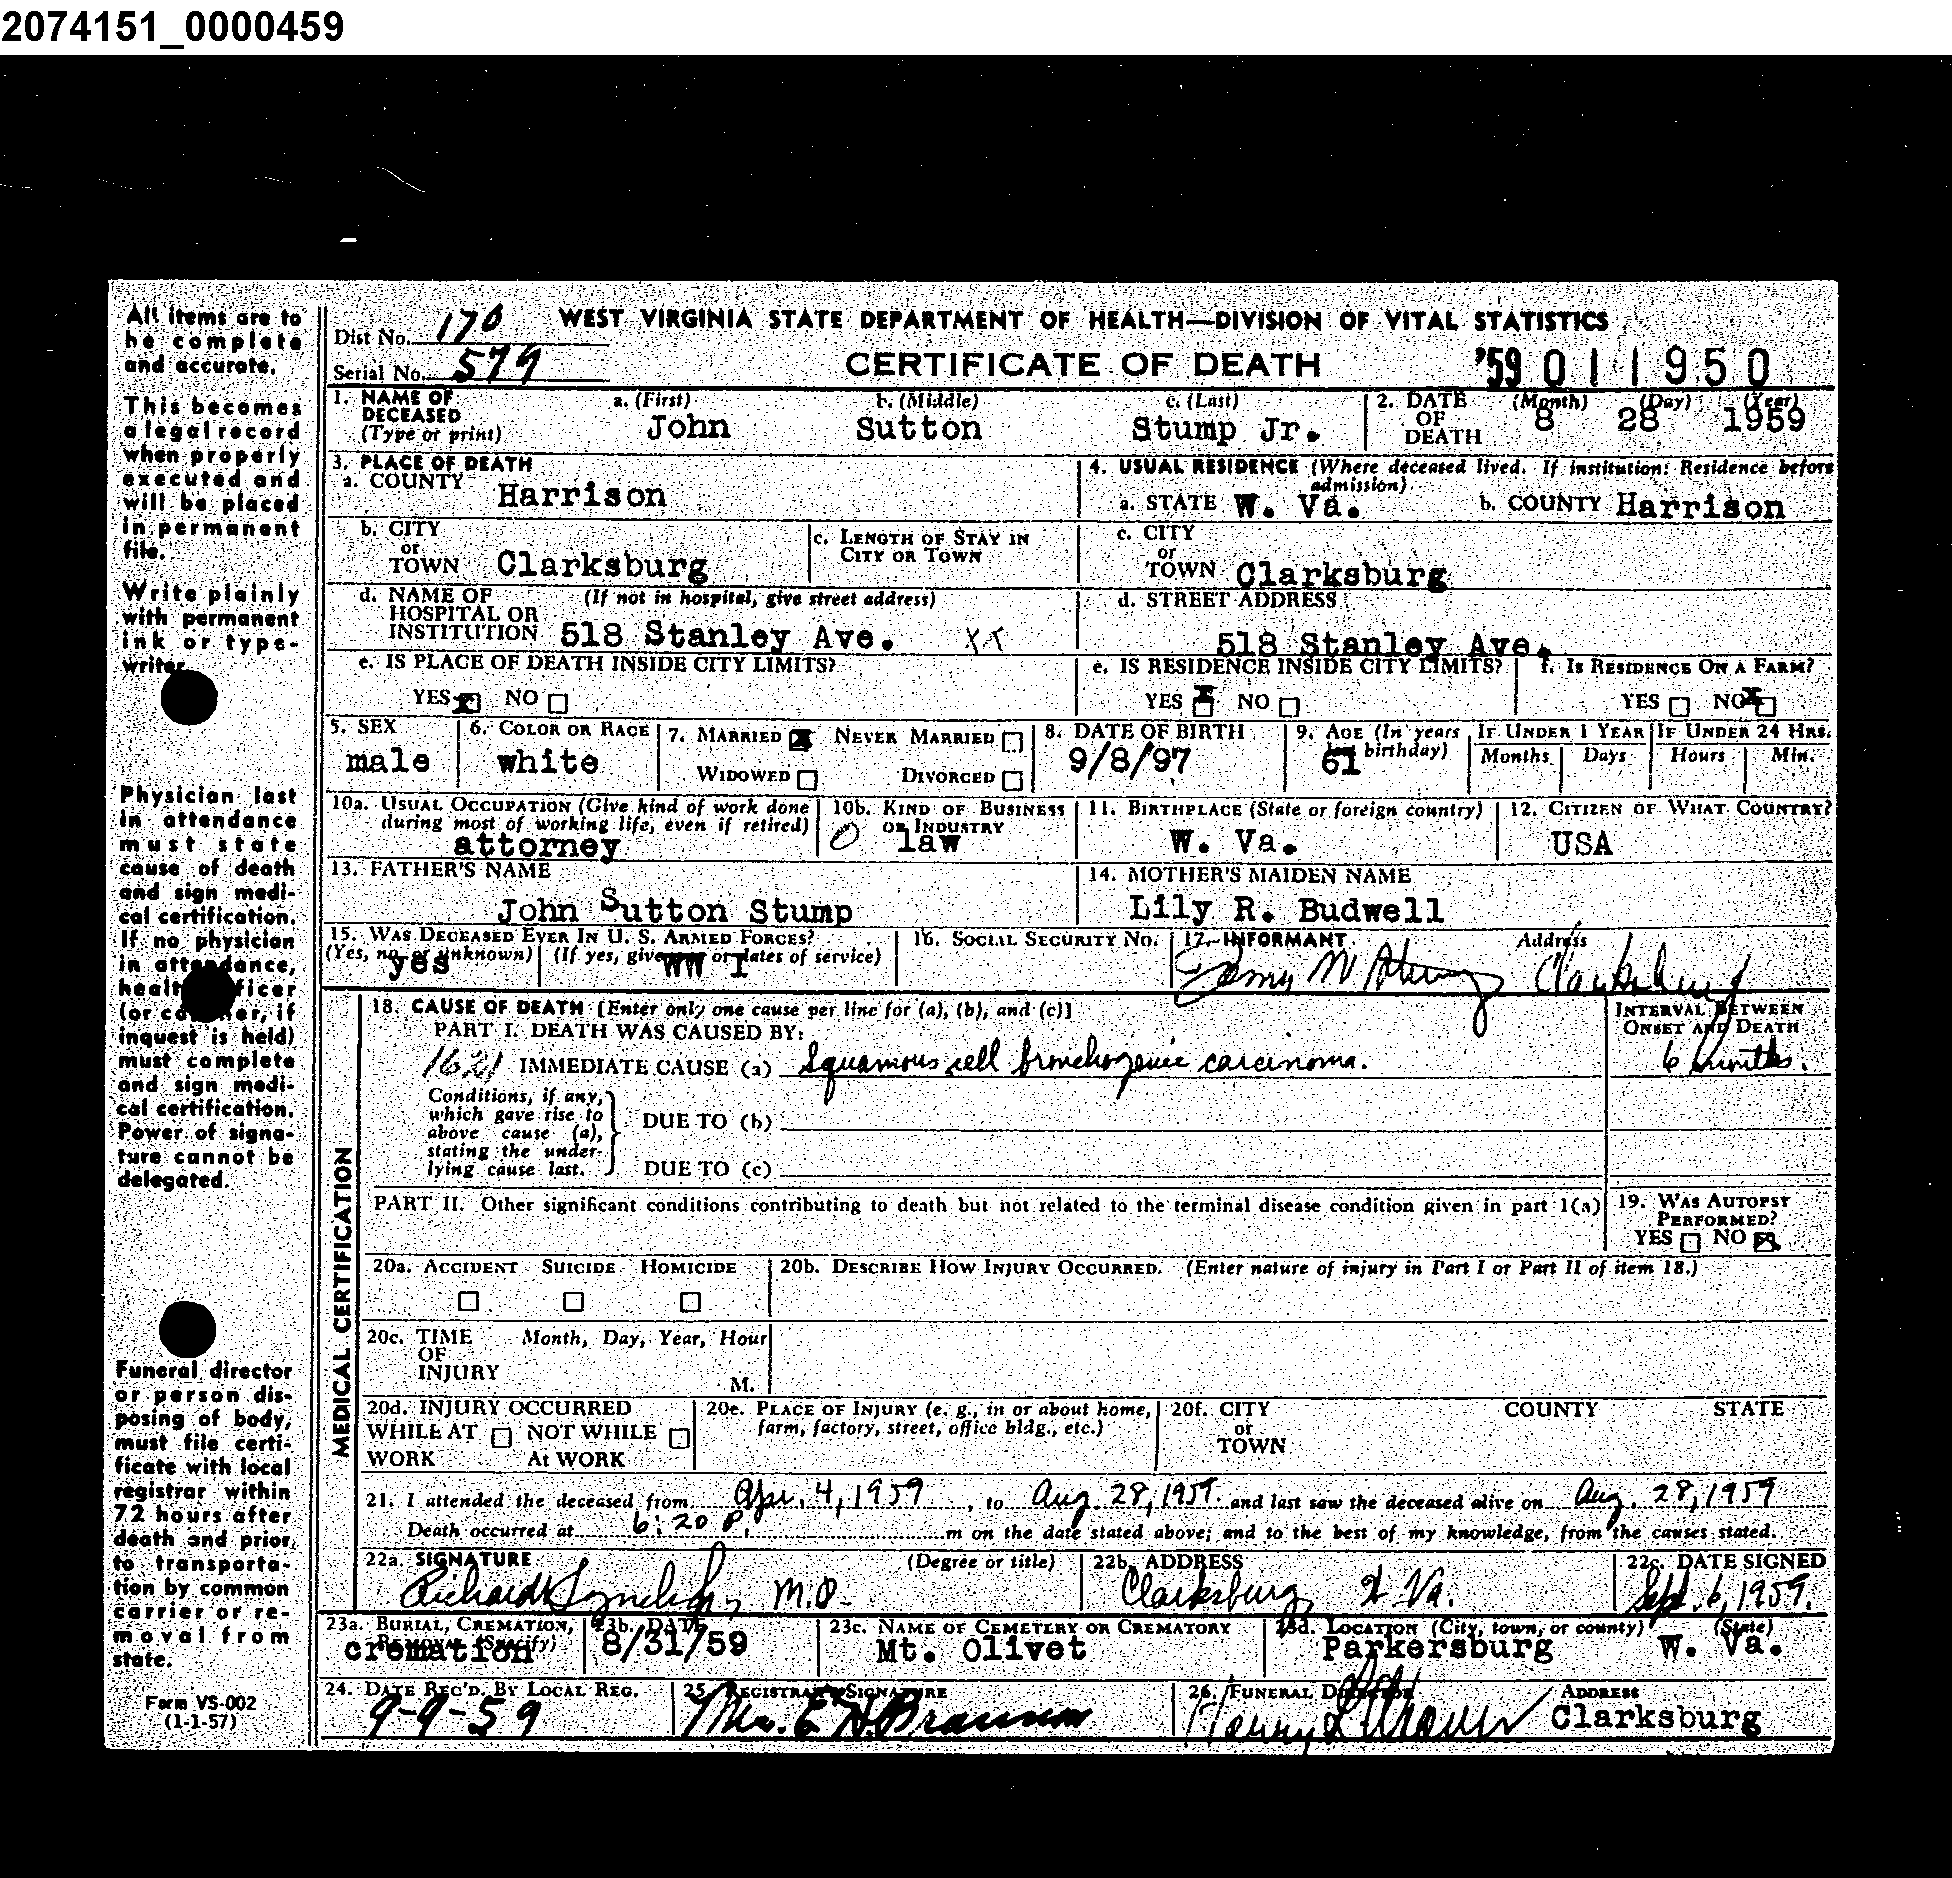 2074151_0000459
All items are to
be complete
and accurate.
This becomes
a legal record
when properly
executed and
will be placed
in permanent
file.
Write plainly
with permanent
ink or type-
writer
Physician last
in attendance
must state
cause of death
and sign medi-
cal certification.
If no physician
in attendance,
health officer
(or coroner, if
inquest is held)
must complete
and sign medi-
cal certification.
Power of signa-
ture cannot be
delegated.
Funeral director
or person dis-
posing of body,
must file certi-
ficate with local
registrar within
72 hours after
death and prior
to transporta-
tion by common
carrier or re-
moval from
state.
Form VS-002
(1-1-57)
Dist No. 170
WEST VIRGINIA STATE DEPARTMENT OF HEALTH—DIVISION OF VITAL STATISTICS
Serial No. 579
CERTIFICATE OF DEATH
'59 011950
1. NAME OF DECEASED (Type or print) a. (First) b. (Middle) c. (Last)
John Sutton Stump Jr.
2. DATE OF DEATH (Month) (Day) (Year)
8 28 1959
3. PLACE OF DEATH
a. COUNTY Harrison
4. USUAL RESIDENCE (Where deceased lived. If institution: Residence before admission)
a. STATE W. Va. b. COUNTY Harrison
b. CITY or TOWN Clarksburg
c. LENGTH OF STAY IN CITY OR TOWN
c. CITY or TOWN Clarksburg
d. NAME OF HOSPITAL OR INSTITUTION (If not in hospital, give street address)
518 Stanley Ave. XX
d. STREET ADDRESS
518 Stanley Ave.
e. IS PLACE OF DEATH INSIDE CITY LIMITS?
YES X NO
e. IS RESIDENCE INSIDE CITY LIMITS?
YES X NO
f. IS RESIDENCE ON A FARM?
YES NO X
5. SEX
male
6. COLOR OR RACE
white
7. MARRIED X NEVER MARRIED
WIDOWED DIVORCED
8. DATE OF BIRTH
9/8/97
9. AGE (In years last birthday)
61
IF UNDER 1 YEAR
Months Days
IF UNDER 24 HRS.
Hours Min.
10a. USUAL OCCUPATION (Give kind of work done during most of working life, even if retired)
attorney
10b. KIND OF BUSINESS OR INDUSTRY
law
11. BIRTHPLACE (State or foreign country)
W. Va.
12. CITIZEN OF WHAT COUNTRY?
USA
13. FATHER'S NAME
John Sutton Stump
14. MOTHER'S MAIDEN NAME
Lily R. Budwell
15. WAS DECEASED EVER IN U. S. ARMED FORCES?
(Yes, no, or unknown) (If yes, give war or dates of service)
yes WW I
16. SOCIAL SECURITY No.
17. INFORMANT Address
Clarksburg
MEDICAL CERTIFICATION
18. CAUSE OF DEATH [Enter only one cause per line for (a), (b), and (c)]
INTERVAL BETWEEN ONSET AND DEATH
PART I. DEATH WAS CAUSED BY:
1621 IMMEDIATE CAUSE (a) Squamous cell bronchogenic carcinoma. 6 months.
Conditions, if any, which gave rise to above cause (a), stating the under-lying cause last.
DUE TO (b)
DUE TO (c)
PART II. Other significant conditions contributing to death but not related to the terminal disease condition given in part 1(a)
19. WAS AUTOPSY PERFORMED?
YES NO X
20a. ACCIDENT SUICIDE HOMICIDE
20b. DESCRIBE HOW INJURY OCCURRED. (Enter nature of injury in Part I or Part II of item 18.)
20c. TIME OF INJURY Month, Day, Year, Hour
M.
20d. INJURY OCCURRED
WHILE AT WORK NOT WHILE At WORK
20e. PLACE OF INJURY (e. g., in or about home, farm, factory, street, office bldg., etc.)
20f. CITY or TOWN COUNTY STATE
21. I attended the deceased from Apr. 4, 1959, to Aug. 28, 1959 and last saw the deceased alive on Aug. 28, 1959
Death occurred at 6:20 P. m on the date stated above; and to the best of my knowledge, from the causes stated.
22a. SIGNATURE (Degree or title)
Richard Lynch M.D.
22b. ADDRESS
Clarksburg, W. Va.
22c. DATE SIGNED
Sept. 6, 1959.
23a. BURIAL, CREMATION, REMOVAL (Specify)
cremation
23b. DATE
8/31/59
23c. NAME OF CEMETERY OR CREMATORY
Mt. Olivet
23d. LOCATION (City, town, or county) (State)
Parkersburg W. Va.
24. DATE REC'D. BY LOCAL REG.
9-9-59
25. REGISTRAR'S SIGNATURE
Mrs. E. H.
26. FUNERAL DIRECTOR ADDRESS
Clarksburg